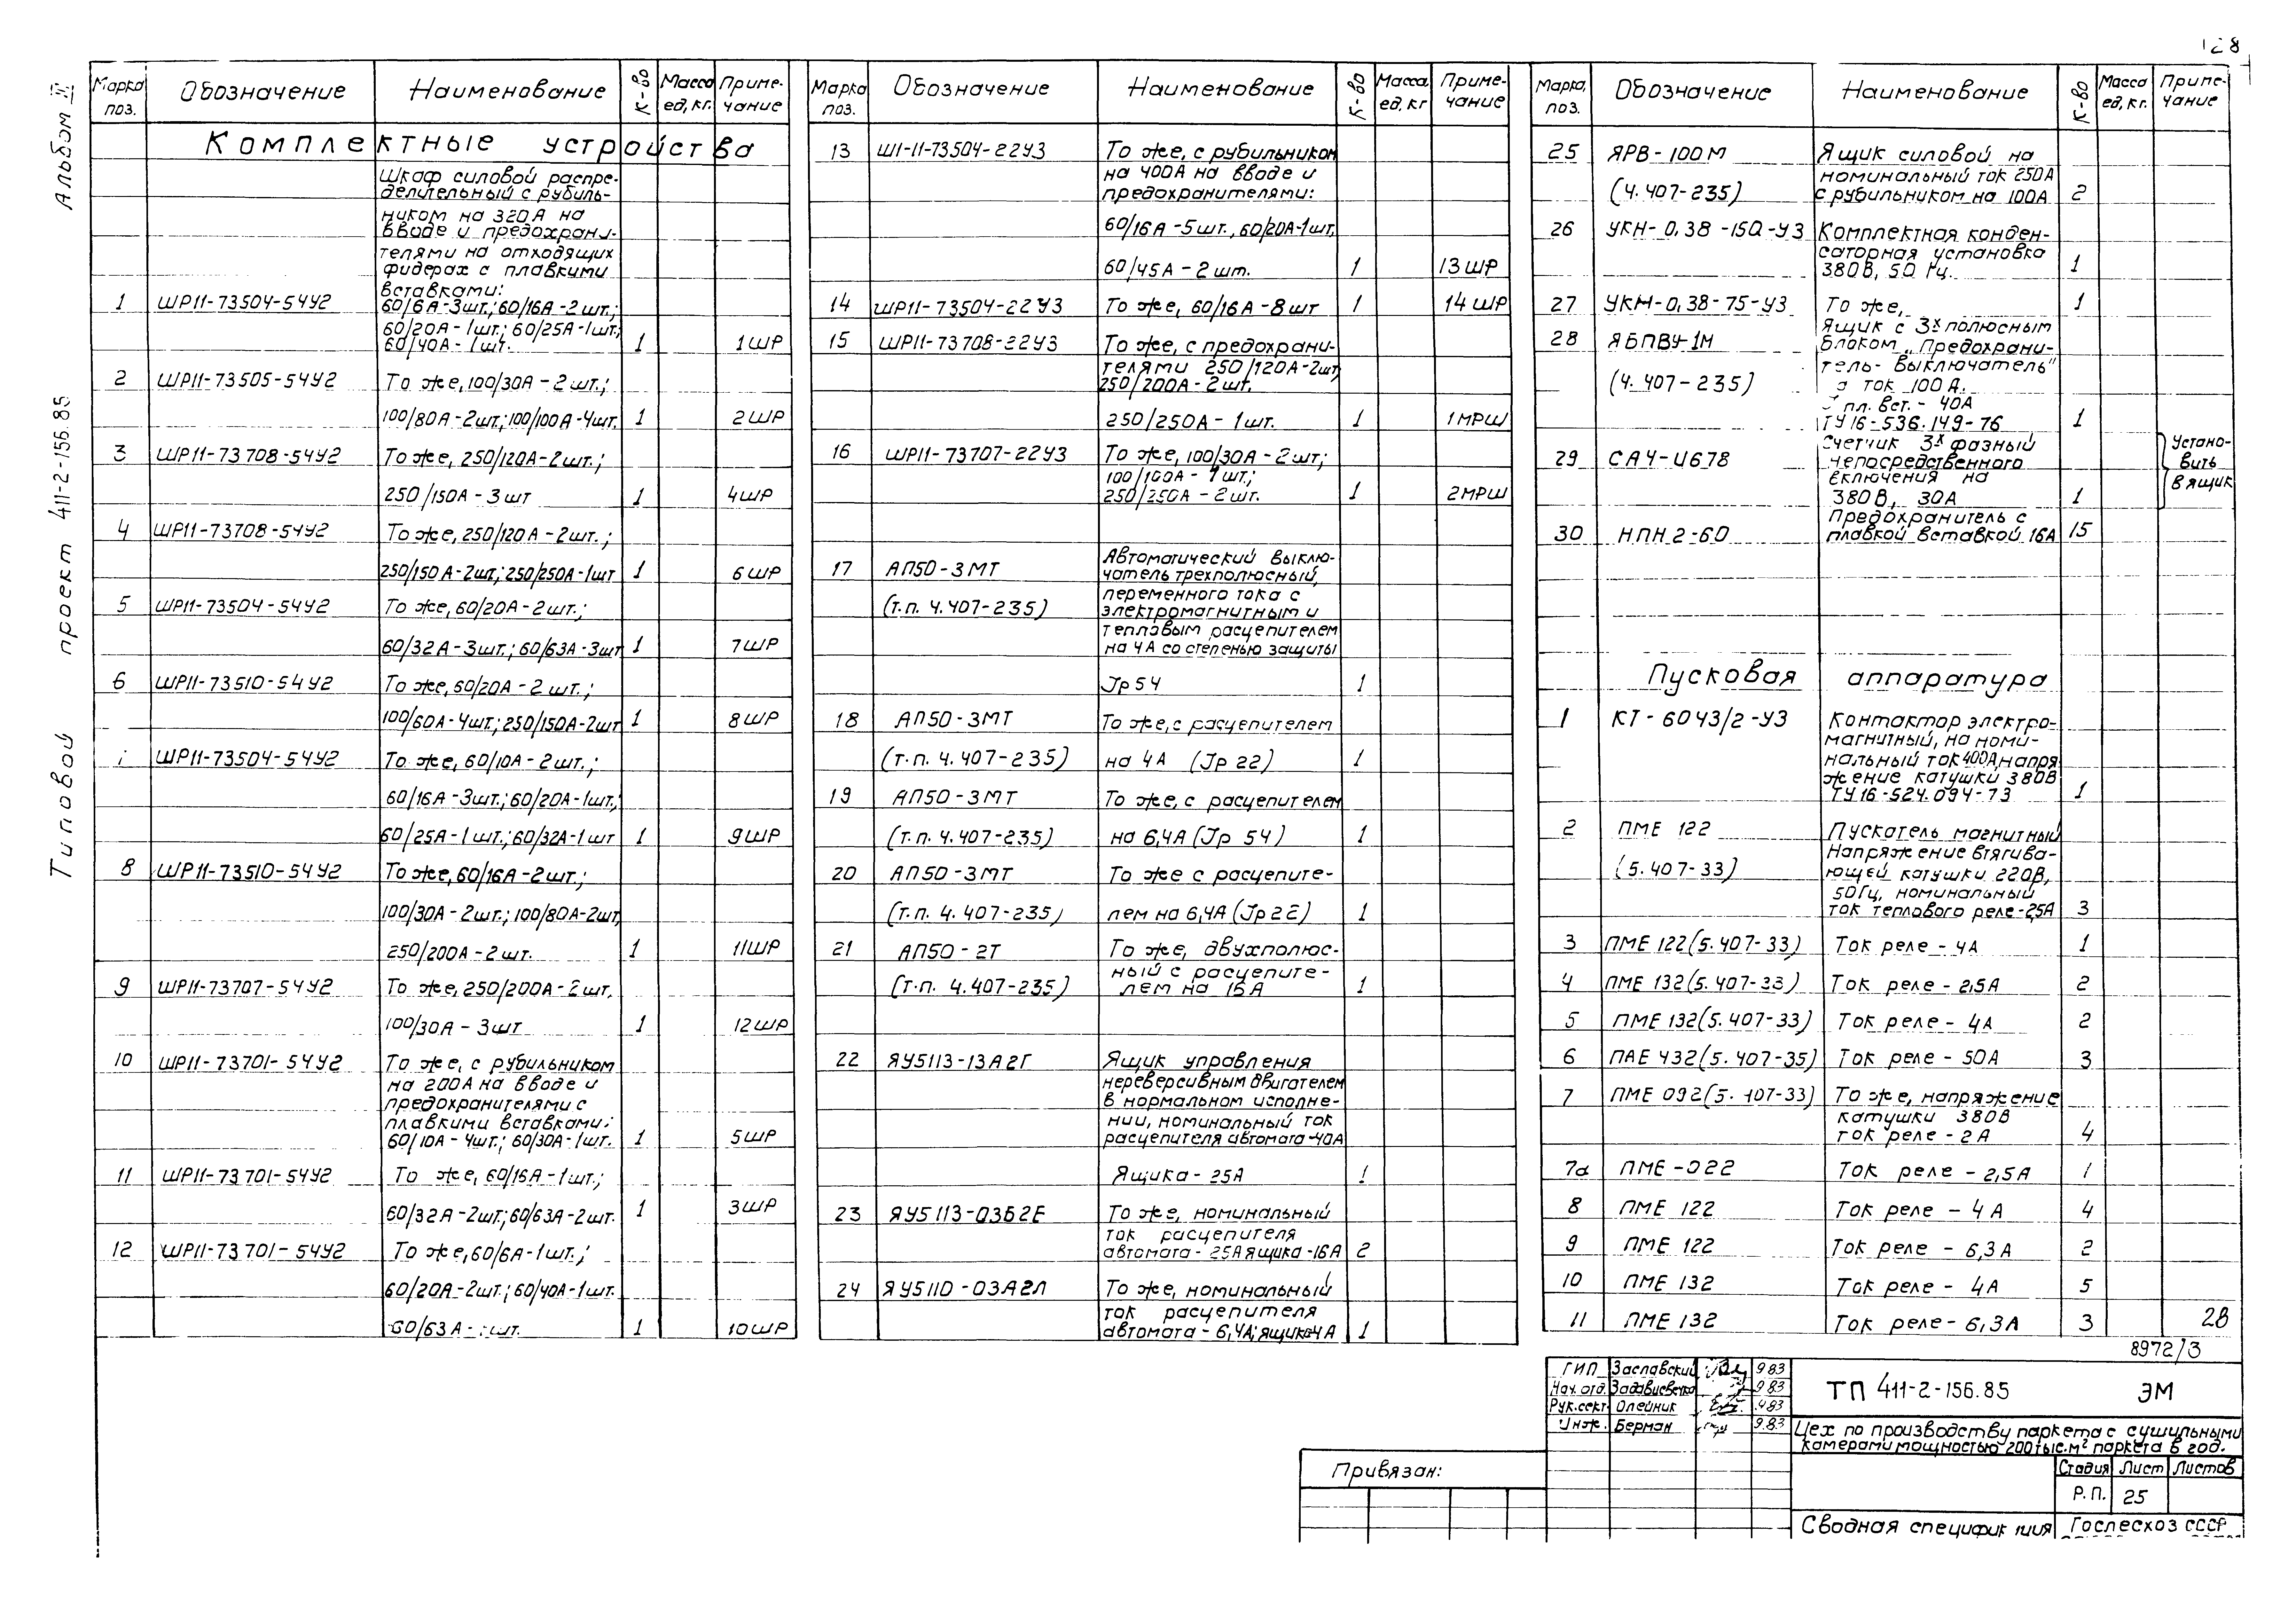 128
Альбом IV
Типовой проект 411-2-156.85
Марка поз. Обозначение Наименование К-во Масса ед, кг. Примечание
Комплектные устройства
Шкаф силовой распре-
делительный с рубиль-
ником на 320А на
вводе и предохрани-
телями на отходящих
фидерах с плавкими
вставками:
1 ШР11-73504-54У2 60/6А-3шт.; 60/16А-2шт.;
60/20А-1шт.; 60/25А-1шт.;
60/40А-1шт. 1 1ШР
2 ШР11-73505-54У2 То же, 100/30А-2шт.;
100/80А-2шт.; 100/100А-4шт. 1 2ШР
3 ШР11-73708-54У2 То же, 250/120А-2шт.;
250/150А-3шт 1 4ШР
4 ШР11-73708-54У2 То же, 250/120А-2шт.;
250/150А-2шт.; 250/250А-1шт 1 6ШР
5 ШР11-73504-54У2 То же, 60/20А-2шт.;
60/32А-3шт.; 60/63А-3шт 1 7ШР
6 ШР11-73510-54У2 То же, 60/20А-2шт.;
100/60А-4шт.; 250/150А-2шт 1 8ШР
ШР11-73504-54У2 То же, 60/10А-2шт.;
60/16А-3шт.; 60/20А-1шт.;
60/25А-1шт.; 60/32А-1шт 1 9ШР
8 ШР11-73510-54У2 То же, 60/16А-2шт.;
100/30А-2шт.; 100/80А-2шт,
250/200А-2шт. 1 11ШР
9 ШР11-73707-54У2 То же, 250/200А-2шт.
100/30А-3шт 1 12ШР
10 ШР11-73701-54У2 То же, с рубильником
на 200А на вводе и
предохранителями с
плавкими вставками:
60/10А-4шт.; 60/30А-1шт. 1 5ШР
11 ШР11-73701-54У2 То же, 60/16А-1шт.;
60/32А-2шт.; 60/63А-2шт. 1 3ШР
12 ШР11-73701-54У2 То же, 60/6А-1шт.;
60/20А-2шт.; 60/40А-1шт.
60/63А- шт. 1 10ШР
Марка поз. Обозначение Наименование К-во Масса, ед, кг Примечание
13 Ш1-11-73504-22У3 То же, с рубильником
на 400А на вводе и
предохранителями:
60/16А-5шт., 60/20А-1шт,
60/45А-2шт. 1 13ШР
14 ШР11-73504-22У3 То же, 60/16А-8шт 1 14ШР
15 ШР11-73708-22У3 То же, с предохрани-
телями 250/120А-2шт,
250/200А-2шт.
250/250А-1шт. 1 1МРШ
16 ШР11-73707-22У3 То же, 100/30А-2шт;
100/100А-1шт.;
250/250А-2шт. 1 2МРШ
17 АП50-3МТ Автоматический выклю-
чатель трехполюсный,
переменного тока с
(т.п. 4.407-235) электромагнитным и
тепловым расцепителем
на 4А со степенью защиты
Jр54 1
18 АП50-3МТ То же, с расцепителем
(т.п. 4.407-235) на 4А (Jр 22) 1
19 АП50-3МТ То же, с расцепителем
(т.п. 4.407-235) на 6,4А (Jр 54) 1
20 АП50-3МТ То же с расцепите-
(т.п. 4.407-235) лем на 6,4А (Jр22) 1
21 АП50-2Т То же, двухполюс-
ный с расцепите-
(т.п. 4.407-235) лем на 16А 1
22 ЯУ5113-13А2Г Ящик управления
нереверсивным двигателем
в нормальном исполне-
нии, номинальный ток
расцепителя автомата-40А
Ящика-25А 1
23 ЯУ5113-03Б2Е То же, номинальный
ток расцепителя
автомата-25А ящика-16А 2
24 ЯУ5110-03А2Л То же, номинальный
ток расцепителя
автомата-6,4А; ящика-4А 1
Марка, поз. Обозначение Наименование К-во Масса ед, кг. Примечание
25 ЯРВ-100М Ящик силовой на
номинальный ток 250А
(4.407-235) с рубильником на 100А 2
26 УКН-0,38-150-У3 Комплектная конден-
саторная установка
380В, 50 Гц. 1
27 УКН-0,38-75-У3 То же, 1
28 ЯБПВУ-1М Ящик с 3х полюсным
блоком „Предохрани-
тель-выключатель"
(4.407-235) ток 100А.
пл. вст.-40А
ТУ16-536.149-76 1
29 САЧ-И678 Счетчик 3х фазный
непосредственного
включения на
380В, 30А 1
Устано-
вить
в ящик
30 НПН2-60 Предохранитель с
плавкой вставкой 16А 15
Пусковая аппаратура
1 КТ-6043/2-У3 Контактор электро-
магнитный, на номи-
нальный ток 400А, напря
жение катушки 380В
ТУ16-524.094-73 1
2 ПМЕ 122 Пускатель магнитный
Напряжение втягива-
(5.407-33) ющей катушки 220В,
50Гц, номинальный
ток теплового реле-2,5А 3
3 ПМЕ 122(5.407-33) Ток реле-4А 1
4 ПМЕ 132(5.407-33) Ток реле-2,5А 2
5 ПМЕ 132(5.407-33) Ток реле-4А 2
6 ПАЕ 432(5.407-35) Ток реле-50А 3
7 ПМЕ 092(5. 107-33) То же, напряжение
катушки 380В
ток реле-2А 4
7а ПМЕ-022 Ток реле-2,5А 1
8 ПМЕ 122 Ток реле-4А 4
9 ПМЕ 122 Ток реле-6,3А 2
10 ПМЕ 132 Ток реле-4А 5
11 ПМЕ 132 Ток реле-6,3А 3
28
8972/3
ГИП Заславский 9.83
Нач. отд. 9.83
Рук.сект. Олейник 9.83
Инж. Берман 9.83
ТП 411-2-156.85 ЭМ
Цех по производству паркета с сушильными
камерами мощностью 200тыс.м² паркета в год.
Стадия Лист Листов
Р.П. 25
Привязан:
Сводная
Гослесхоз СССР